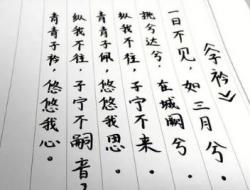 《子衿》
青青子衿,悠悠我心。
纵我不往,子宁不嗣音?
青青子佩,悠悠我思。
纵我不往,子宁不来。
挑兮达兮,在城阙兮。
一日不见,如三月兮。